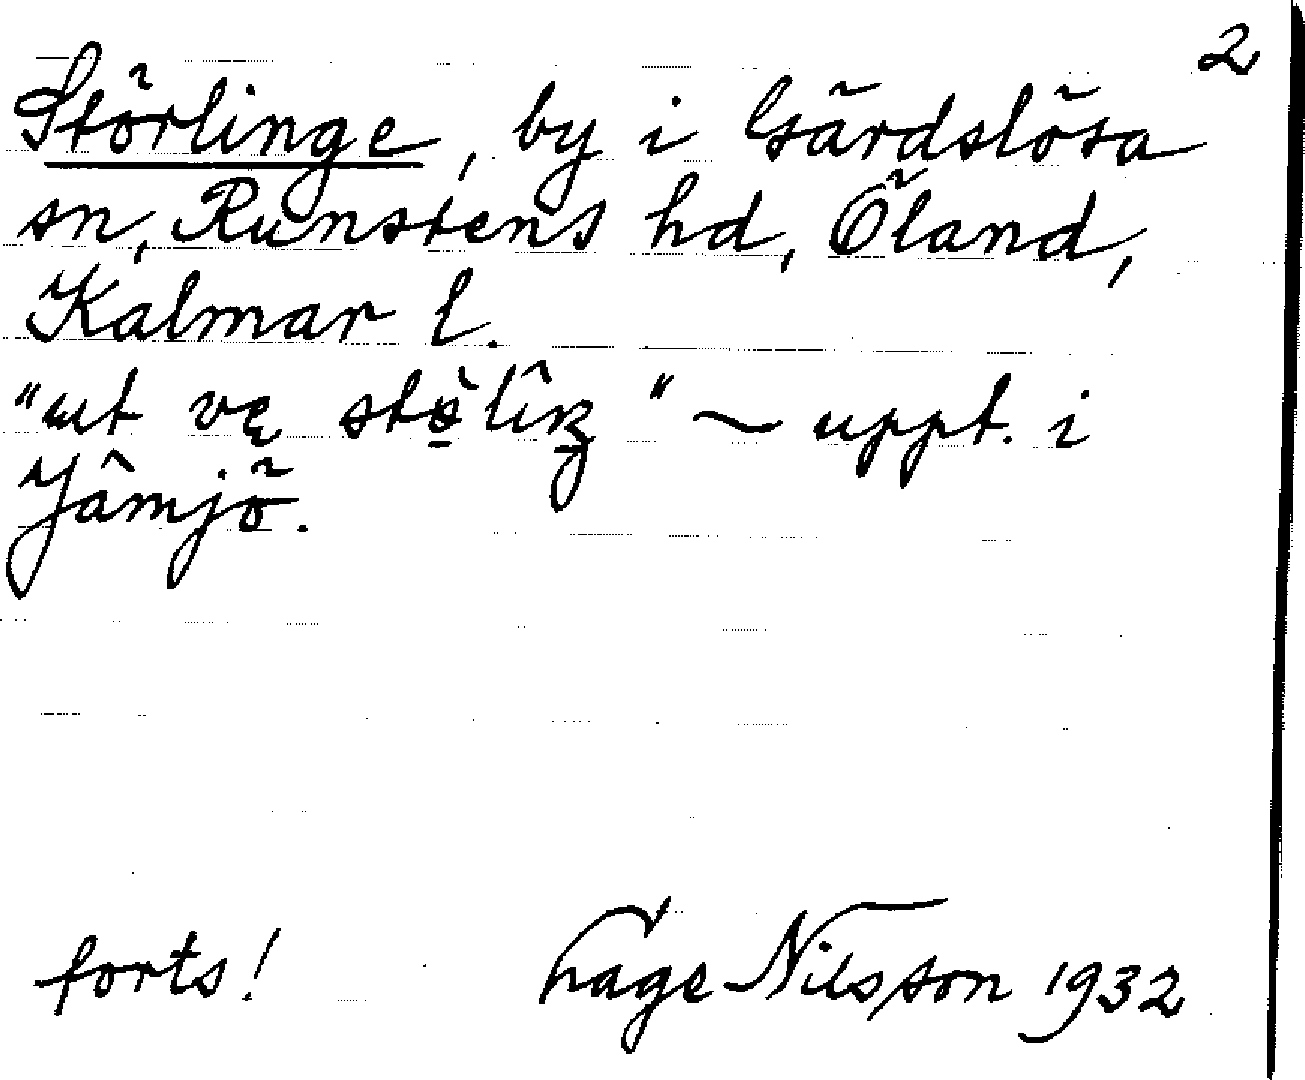 2
Störlinge, by i Gärdslösa
sn, Runstens hd, Öland,
Kalmar l.
uppt. i
Jämjö.
forts! Hage Nilsson 1932